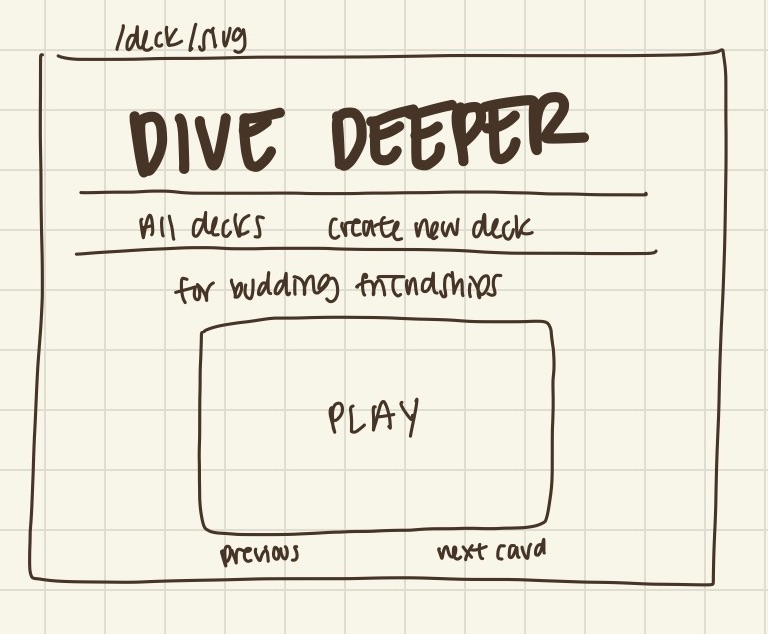 /deck/slug
DIVE DEEPER
All decks create new deck
for budding friendships
PLAY
previous next card